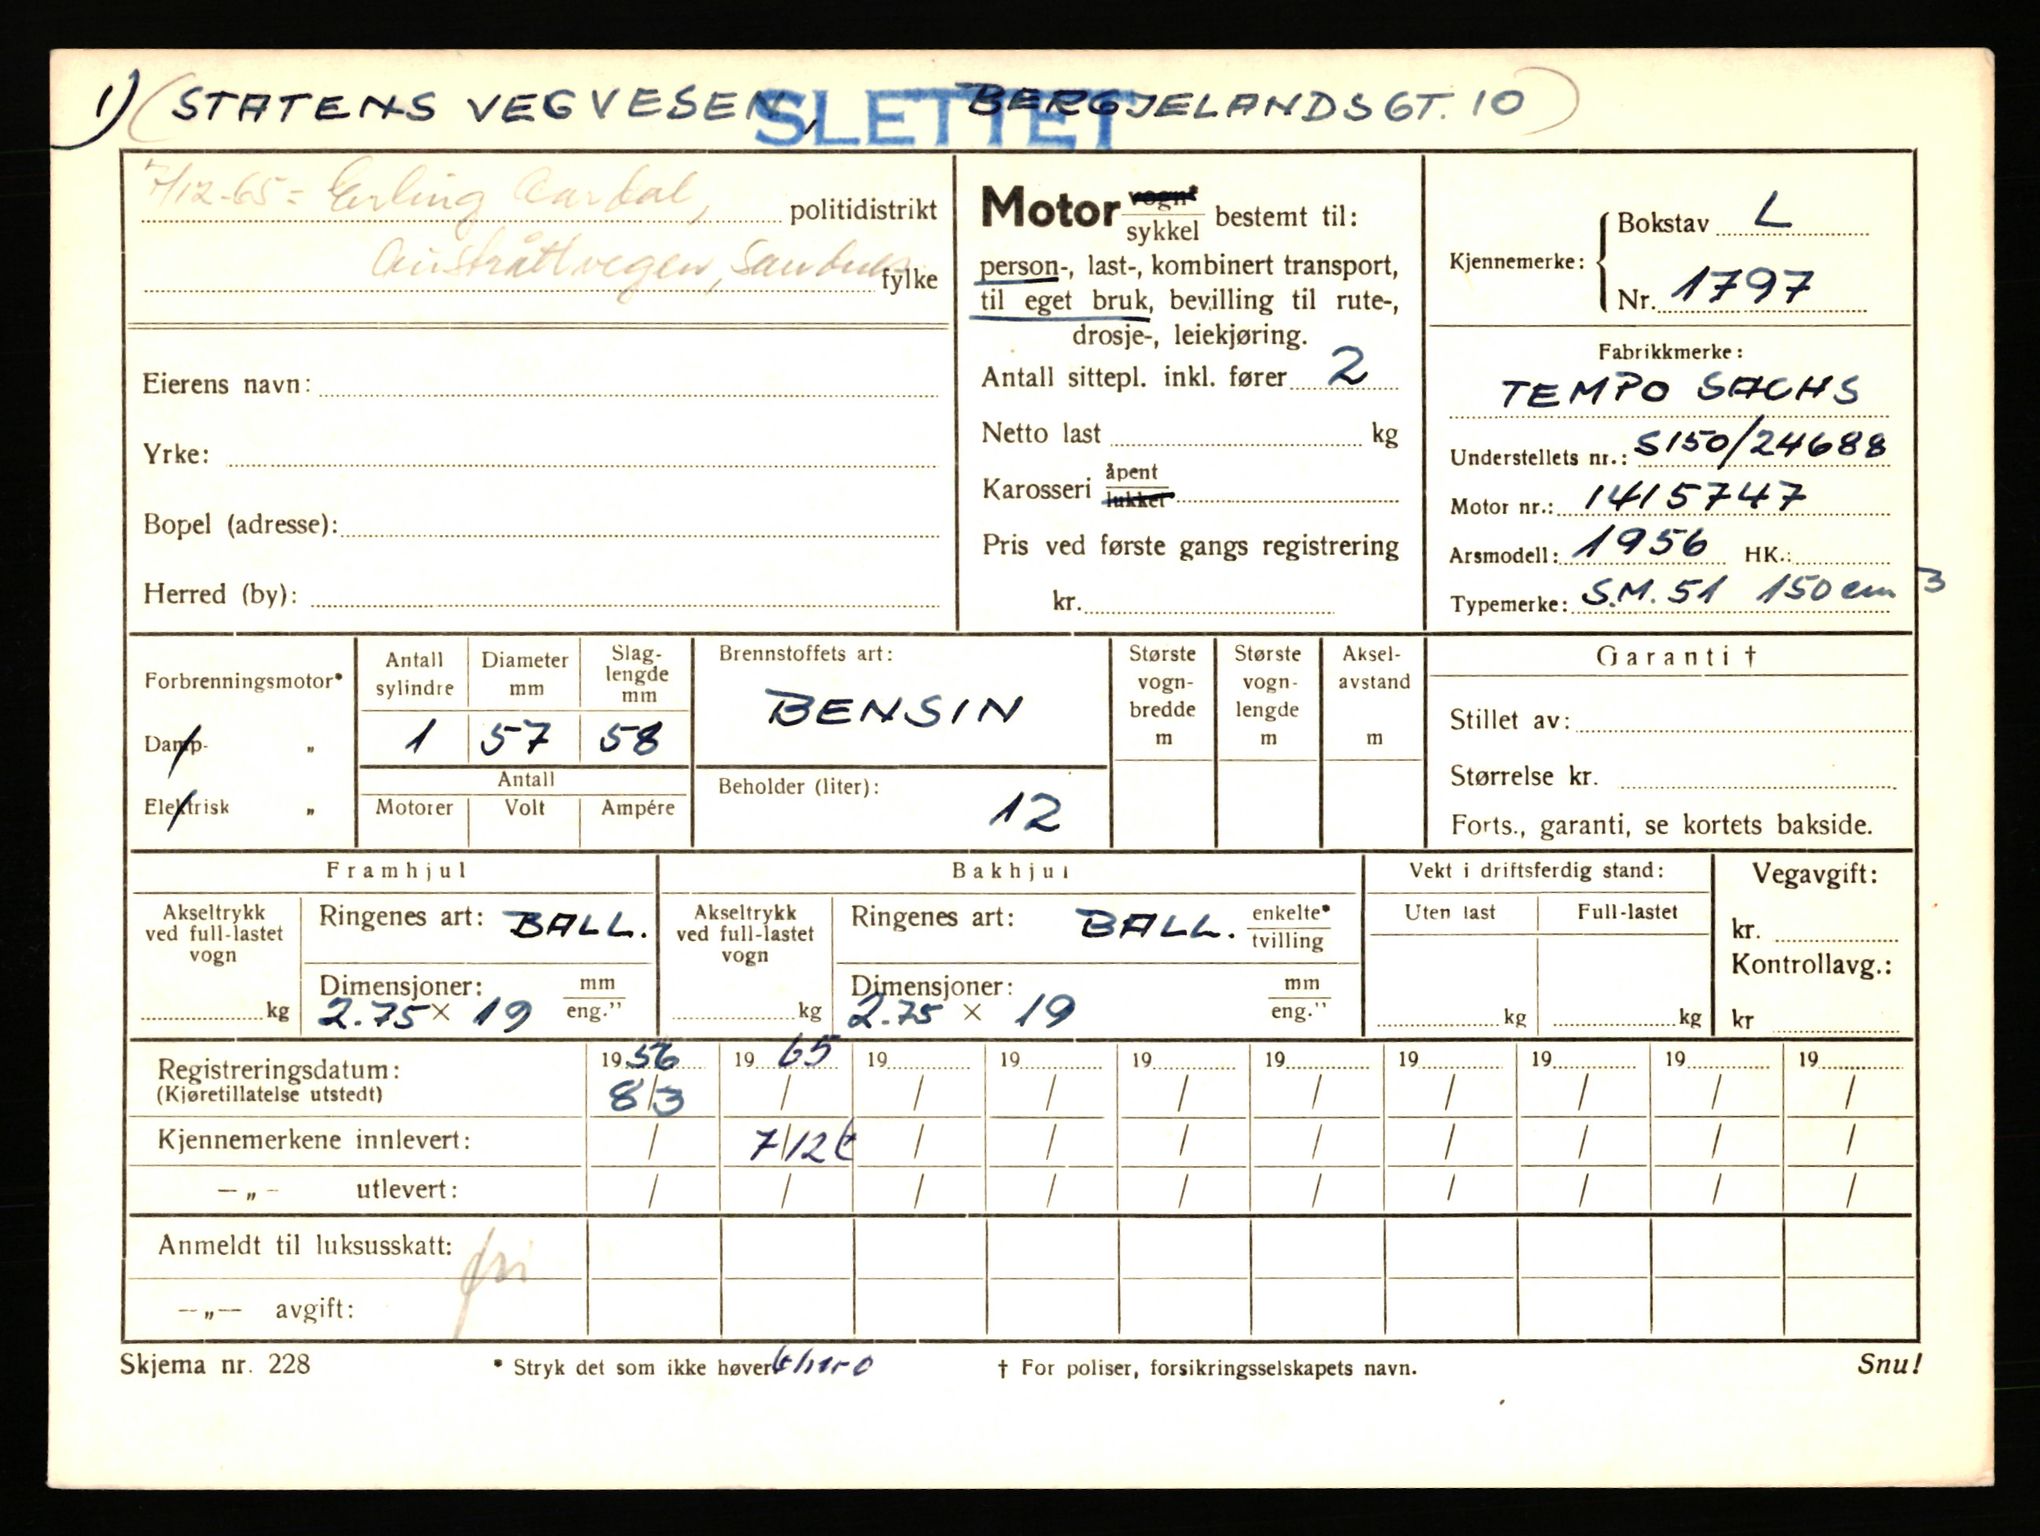 1) (STATENS VEGVESEN, BERGJELANDSGT. 10)
SLETTET
7/12-65 = Erling Aardal, politidistrikt
Austråttvegen, Sandnes fylke
Eierens navn:
Yrke:
Bopel (adresse):
Herred (by):
Motor vogn* / sykkel bestemt til:
person-, last-, kombinert transport,
til eget bruk, bevilling til rute-,
drosje-, leiekjøring.
Antall sittepl. inkl. fører 2
Netto last kg
Karosseri åpent / lukket
Pris ved første gangs registrering
kr.
Kjennemerke: { Bokstav L
Nr. 1797
Fabrikkmerke:
TEMPO SACHS
Understellets nr.: S150/24688
Motor nr.: 1415747
Arsmodell: 1956 HK.:
Typemerke: S.M. 51 150 cm 3
Forbrenningsmotor*
Damp- „
Elektrisk „
Antall sylindre
Diameter mm
Slag-lengde mm
1 57 58
Antall
Motorer Volt Ampére
Brennstoffets art:
BENSIN
Beholder (liter):
12
Største vogn-bredde m
Største vogn-lengde m
Aksel-avstand m
Garanti †
Stillet av:
Størrelse kr.
Forts., garanti, se kortets bakside.
Framhjul
Akseltrykk ved full-lastet vogn
kg
Ringenes art: BALL.
Dimensjoner: mm / eng.”
2.75 × 19
Bakhjul
Akseltrykk ved full-lastet vogn
kg
Ringenes art: BALL. enkelte* / tvilling
Dimensjoner: mm / eng.”
2.75 × 19
Vekt i driftsferdig stand:
Uten last Full-lastet
kg kg
Vegavgift:
kr.
Kontrollavg.:
kr
Registreringsdatum: 1956 1965 19 19 19 19 19 19 19 19
(Kjøretillatelse utstedt) 8/3 / / / / / / / / /
Kjennemerkene innlevert: / 7/12 / / / / / / / /
— „ — utlevert: / / / / / / / / / /
Anmeldt til luksusskatt: fri
— „ — avgift:
Skjema nr. 228
* Stryk det som ikke høver
† For poliser, forsikringsselskapets navn.
Snu!